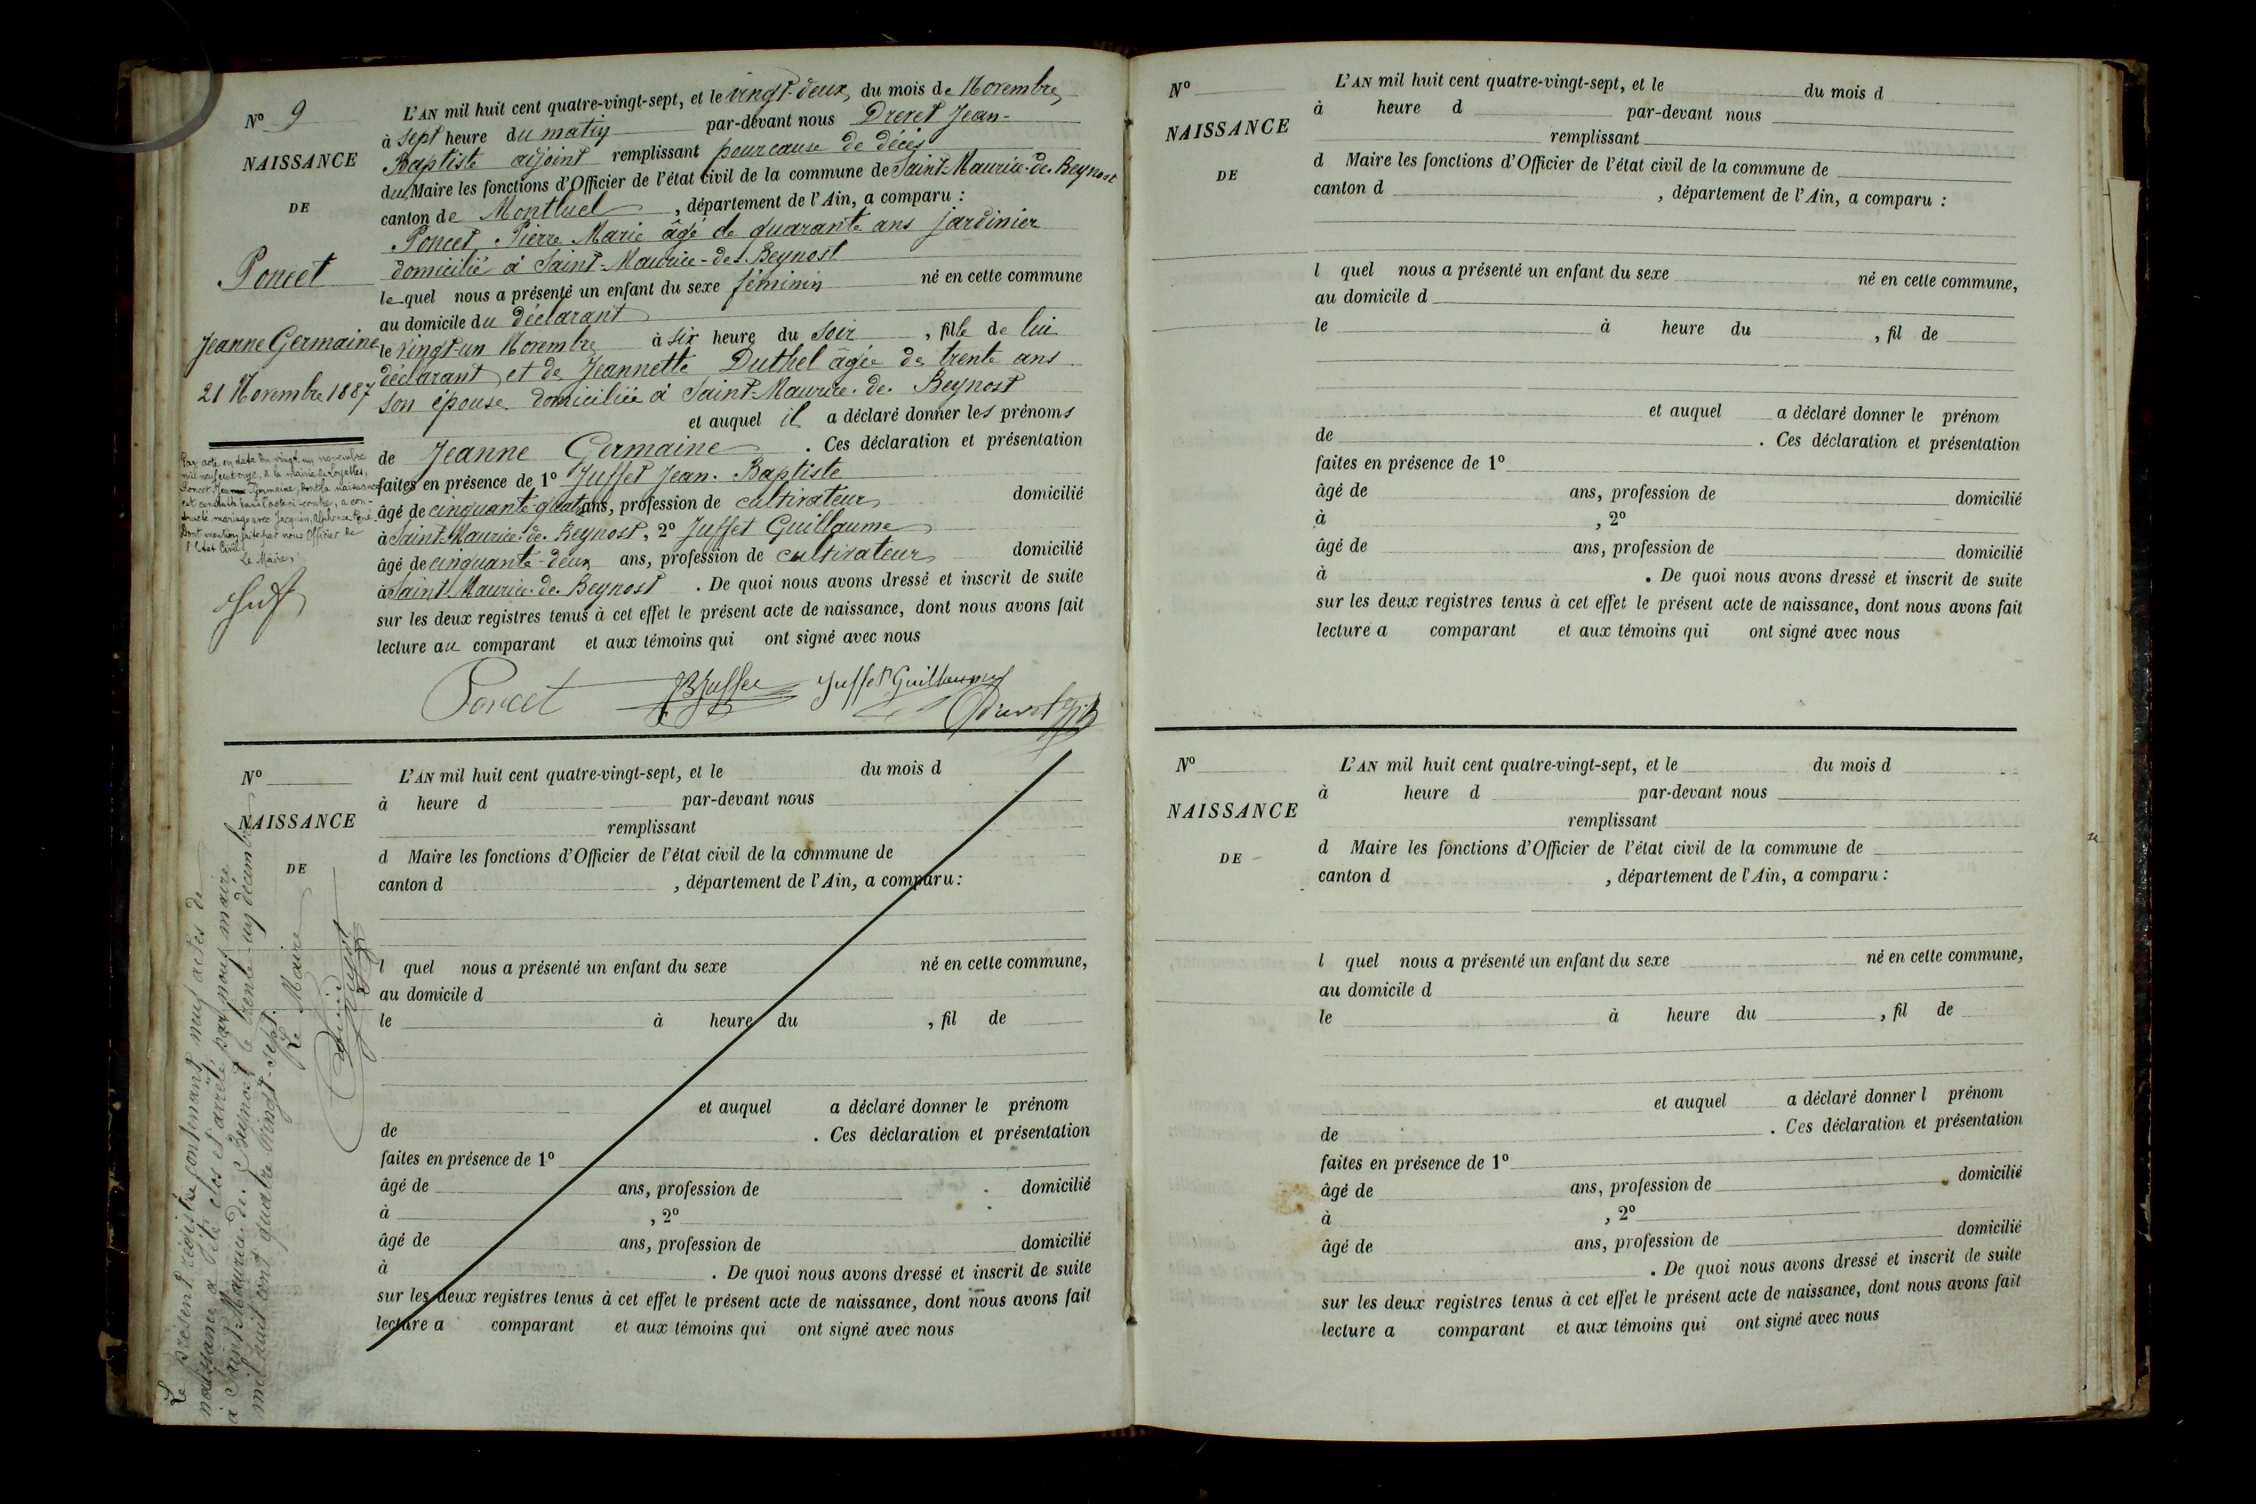 N° 9
NAISSANCE
DE
Poncet
Jeanne Germaine
21 Novembre 1887
Par acte en date du vingt un novembre
mil neuf cent onze, à la mairie de Loyettes,
Poncet Jeanne Germaine, dont la naissance
est constatée dans l'acte ci-contre, a con-
tracté mariage avec Jacquin, Alphonse René
Dont mention faite par nous Officier de
l'Etat Civil
Le Maire,
L'AN mil huit cent quatre-vingt-sept, et le vingt-deux, du mois de Novembre
à sept heure du matin par-devant nous Drevet Jean-
Baptiste adjoint remplissant pour cause de décès
du Maire les fonctions d'Officier de l'état civil de la commune de Saint-Maurice-de-Beynost
canton de Montluel, département de l'Ain, a comparu :
Poncet Pierre Marie âgé de quarante ans jardinier
domicilié à Saint-Maurice-de-Beynost
lequel nous a présenté un enfant du sexe féminin né en cette commune
au domicile du déclarant
le vingt-un Novembre à six heure du soir, fille de lui
déclarant et de Jeannette Duthel âgée de trente ans
son épouse domiciliée à Saint-Maurice-de-Beynost
et auquel il a déclaré donner les prénoms
de Jeanne Germaine. Ces déclaration et présentation
faites en présence de 1° Juffet Jean-Baptiste
âgé de cinquante quatre ans, profession de cultivateur domicilié
à Saint-Maurice-de-Beynost, 2° Juffet Guillaume
âgé de cinquante-deux ans, profession de cultivateur domicilié
à Saint-Maurice-de-Beynost. De quoi nous avons dressé et inscrit de suite
sur les deux registres tenus à cet effet le présent acte de naissance, dont nous avons fait
lecture au comparant et aux témoins qui ont signé avec nous
Poncet JB Juffet Juffet Guillaume Drevet
N°
NAISSANCE
DE
L'AN mil huit cent quatre-vingt-sept, et le du mois d
à heure d par-devant nous
remplissant
d Maire les fonctions d'Officier de l'état civil de la commune de
canton d , département de l'Ain, a comparu :
l quel nous a présenté un enfant du sexe né en cette commune,
au domicile d
le à heure du , fil de
et auquel a déclaré donner le prénom
de . Ces déclaration et présentation
faites en présence de 1°
âgé de ans, profession de domicilié
à , 2°
âgé de ans, profession de domicilié
à . De quoi nous avons dressé et inscrit de suite
sur les deux registres tenus à cet effet le présent acte de naissance, dont nous avons fait
lecture a comparant et aux témoins qui ont signé avec nous
Le présent registre contenant neuf actes de
naissance a été clos et arrêté par nous maire
à Saint-Maurice-de-Beynost le trente-un décembre
mil huit cent quatre vingt-sept.
Le Maire
N°
NAISSANCE
DE
L'AN mil huit cent quatre-vingt-sept, et le du mois d
à heure d par-devant nous
remplissant
d Maire les fonctions d'Officier de l'état civil de la commune de
canton d , département de l'Ain, a comparu :
l quel nous a présenté un enfant du sexe né en cette commune,
au domicile d
le à heure du , fil de
et auquel a déclaré donner le prénom
de . Ces déclaration et présentation
faites en présence de 1°
âgé de ans, profession de domicilié
à , 2°
âgé de ans, profession de domicilié
à . De quoi nous avons dressé et inscrit de suite
sur les deux registres tenus à cet effet le présent acte de naissance, dont nous avons fait
lecture a comparant et aux témoins qui ont signé avec nous
N°
NAISSANCE
DE
L'AN mil huit cent quatre-vingt-sept, et le du mois d
à heure d par-devant nous
remplissant
d Maire les fonctions d'Officier de l'état civil de la commune de
canton d , département de l'Ain, a comparu :
l quel nous a présenté un enfant du sexe né en cette commune,
au domicile d
le à heure du , fil de
et auquel a déclaré donner l prénom
de . Ces déclaration et présentation
faites en présence de 1°
âgé de ans, profession de domicilié
à , 2°
âgé de ans, profession de domicilié
. De quoi nous avons dressé et inscrit de suite
sur les deux registres tenus à cet effet le présent acte de naissance, dont nous avons fait
lecture a comparant et aux témoins qui ont signé avec nous